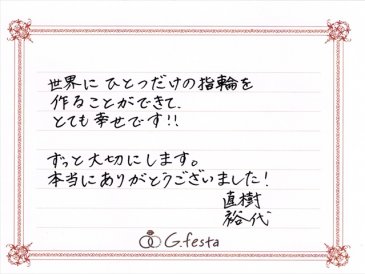 世界に ひとつだけの指輪を
作ることができて、
とても幸せです!!
ずっと大切にします。
本当にありがとうございました!
直樹
裕代
G.festa